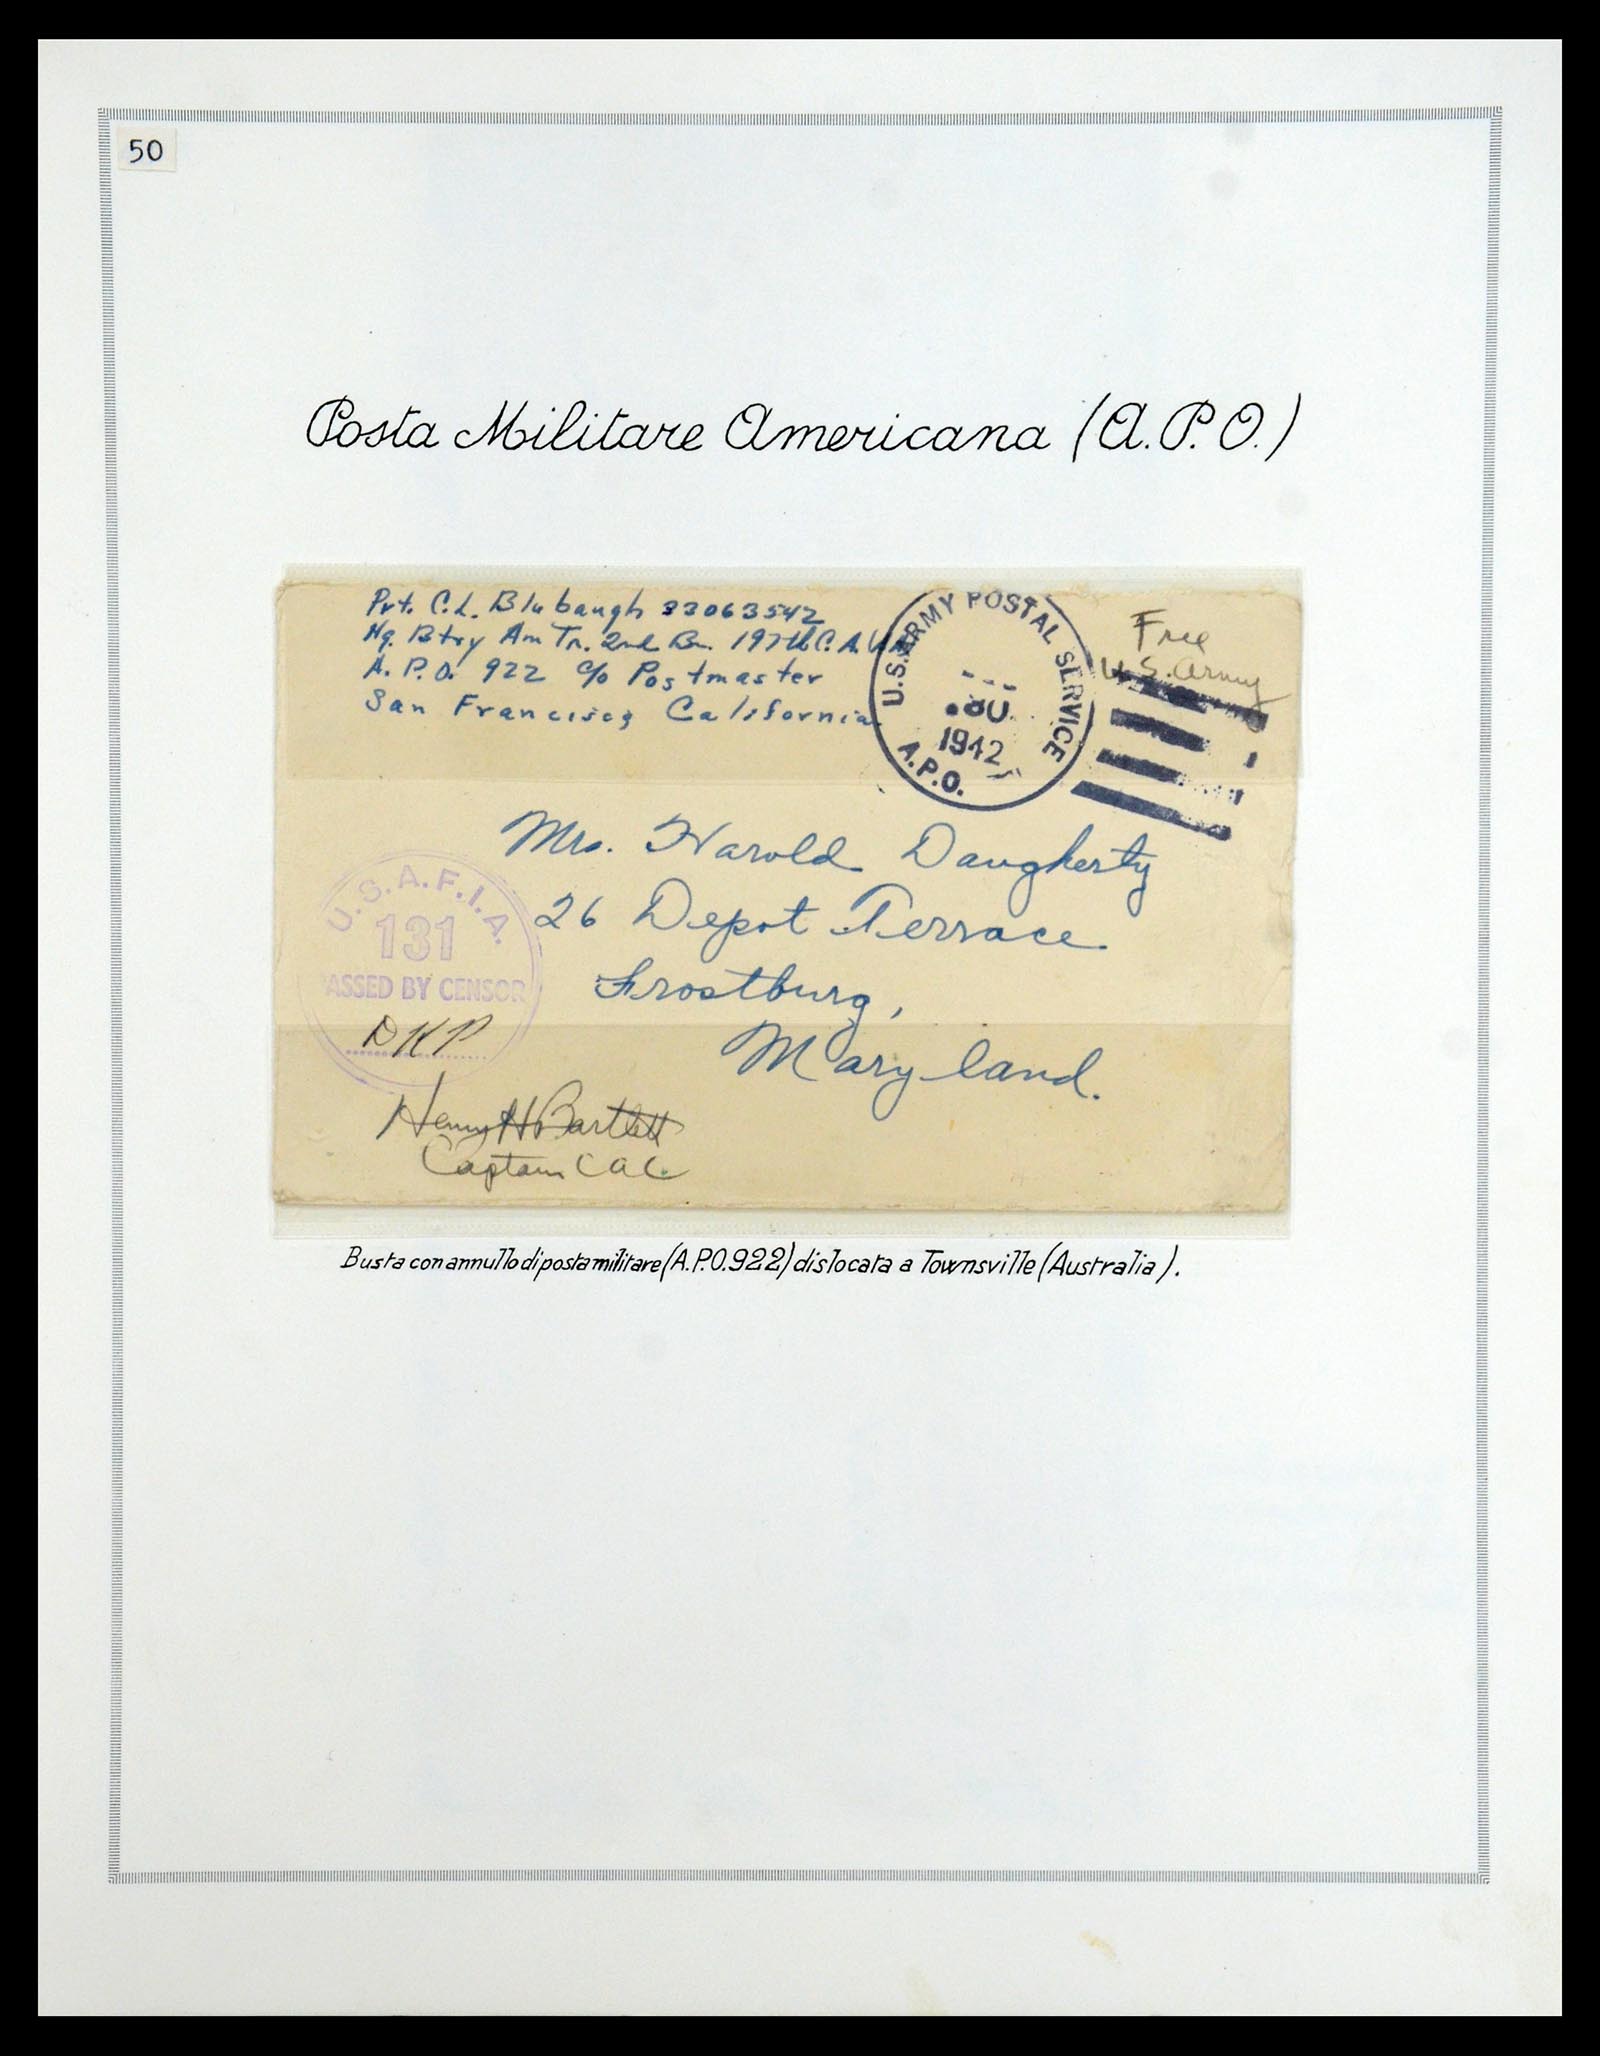 50
Posta Militare Americana (A.P.O.)
Pvt. C.L. Blubaugh 33063542
Hq. Btry Am Tn. 2nd Bn. 197th C.A.
A.P.O. 922 c/o Postmaster
San Francisco California
U.S. ARMY POSTAL SERVICE
1942
A.P.O.
Free
U.S. Army
Mrs. Harold Daugherty
26 Depot Terrace
Frostburg,
Maryland.
U.S.A.F.I.A.
131
PASSED BY CENSOR
DKP
Henry H Bartlett
Captain CAC
Busta con annullo di posta militare (A.P.O. 922) dislocata a Townsville (Australia).